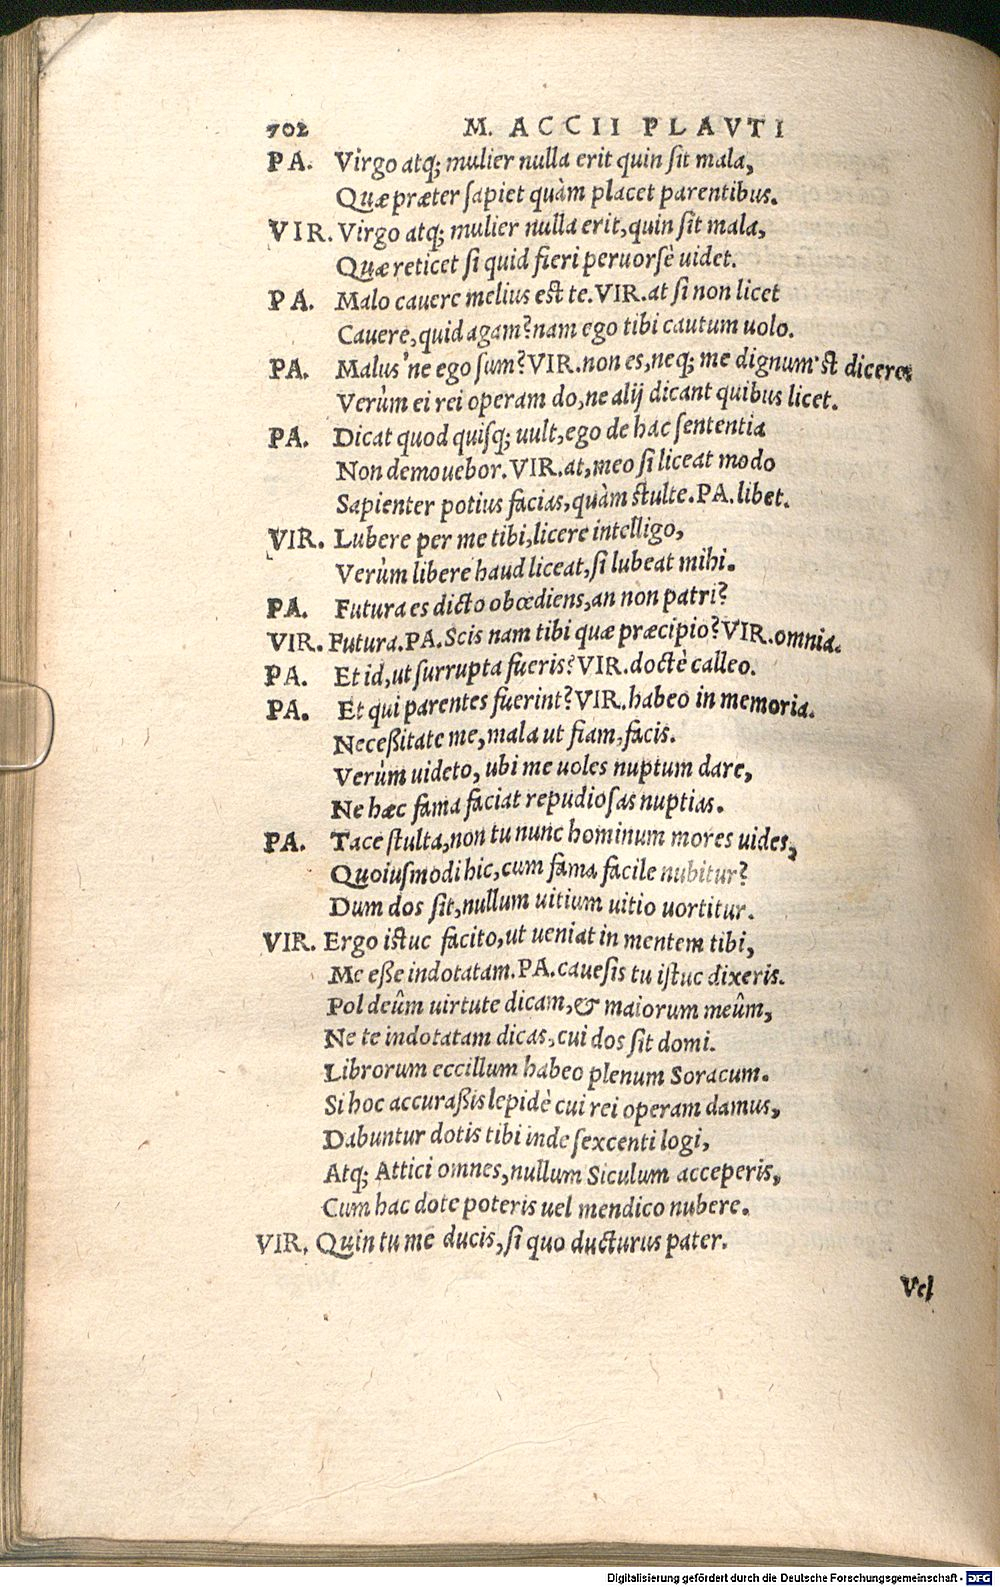 702 M. ACCII PLAVTI
PA. Virgo atq; mulier nulla erit quin sit mala,
Quæ præter sapiet quàm placet parentibus.
VIR. Virgo atq; mulier nulla erit, quin sit mala,
Quæ reticet si quid fieri peruorsè uidet.
PA. Malo cauere melius est te. VIR. at si non licet
Cauere, quid agam? nam ego tibi cautum uolo.
PA. Malus'ne ego sum? VIR. non es, neq; me dignum'st dicere,
Verùm ei rei operam do, ne alij dicant quibus licet.
PA. Dicat quod quisq; uult, ego de hac sententia
Non demouebor. VIR. at, meo si liceat modo
Sapienter potius facias, quàm stulte. PA. libet.
VIR. Lubere per me tibi, licere intelligo,
Verùm libere haud liceat, si lubeat mihi.
PA. Futura es dicto obœdiens, an non patri?
VIR. Futura. PA. Scis nam tibi quæ præcipio? VIR. omnia.
PA. Et id, ut surrupta fueris? VIR. doctè calleo.
PA. Et qui parentes fuerint? VIR. habeo in memoria.
Neceßitate me, mala ut fiam, facis.
Verùm uideto, ubi me uoles nuptum dare,
Ne hæc fama faciat repudiosas nuptias.
PA. Tace stulta, non tu nunc hominum mores uides,
Quoiusmodi hic, cum fama facile nubitur?
Dum dos sit, nullum uitium uitio uortitur.
VIR. Ergo istuc facito, ut ueniat in mentem tibi,
Me eße indotatam. PA. cauesis tu istuc dixeris.
Pol deûm uirtute dicam, & maiorum meûm,
Ne te indotatam dicas, cui dos sit domi.
Librorum eccillum habeo plenum Soracum.
Si hoc accuraßis lepidè cui rei operam damus,
Dabuntur dotis tibi inde sexcenti logi,
Atq; Attici omnes, nullum Siculum acceperis,
Cum hac dote poteris uel mendico nubere.
VIR. Quin tu me ducis, si quo ducturus pater.
Vel
Digitalisierung gefördert durch die Deutsche Forschungsgemeinschaft - DFG